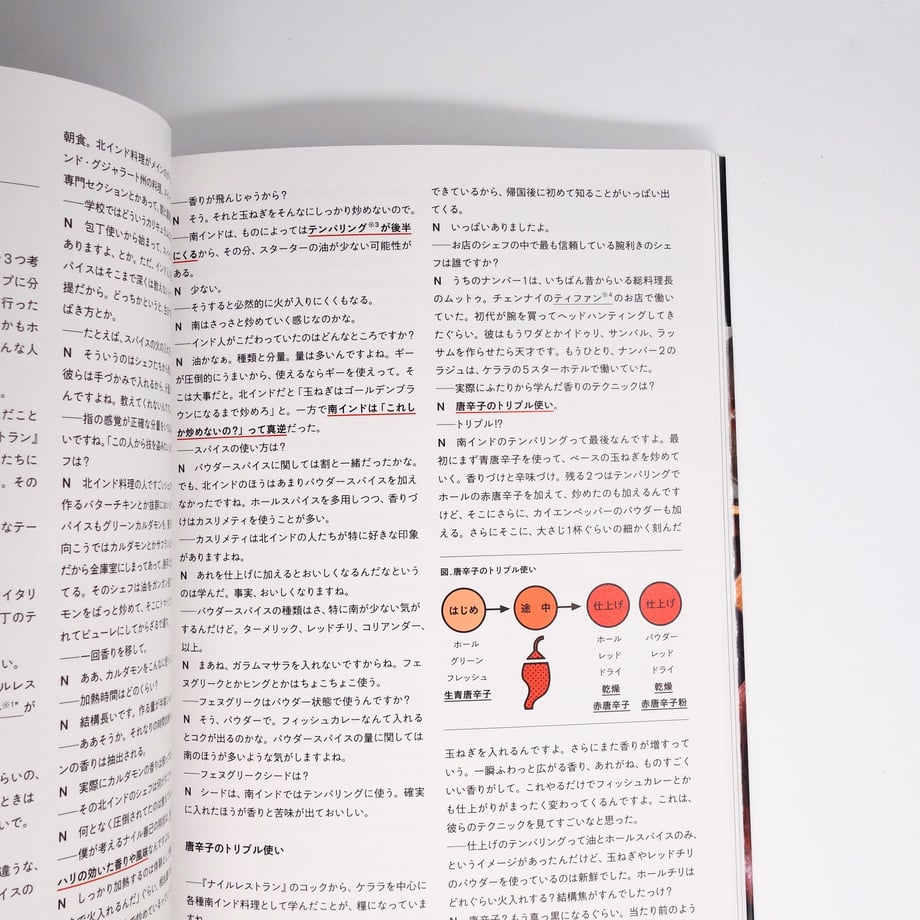 朝食。北インド料理がメインの
ンド・グジャラート州の料理、
専門セクションとかあって、
――学校ではどういうカリキュラ
N 包丁使いから始まって、
ありますよ、とか。ただ、イン
パイスはそこまで深くは教え
提だから。どっちかというと、
ばき方とか。
――たとえば、スパイスの火の入れ
N そういうのはシェフたちから
彼らは手づかみで入れるから、分量
んですよね。教えてくれない
――指の感覚が正確な分量を
いですね。「この人から技を盗み
フは？
N 北インド料理の人ですごい
作るバターチキンとか抜群に
パイスもグリーンカルダモンを
向こうではカルダモンとかサフラン
だから金庫室にしまってあって、
てる。そのシェフは油をガンガン
モンをばっと炒めて、そこにトマト
れてピューレにしてからざるで
――一回香りを移して。
N ああ、カルダモンをこんなに
――加熱時間はどのくらい？
N 結構長いです。作る量が
――ああそうか。それなりの時間
ンの香りは抽出される。
N 実際にカルダモンの香りは
――その北インドのシェフは
N 何となく圧倒されてたのは
――僕が考えるナイル善己の
ハリの効いた香りや風味なんです
N しっかり加熱するのは
まで火入れるんだ」ぐらい、
３つ考
プに分
行った
かもホ
んな人
。
だこと
トラン』
たちに
。その
なテー
イタリ
丁のテ
い。
ルレス
※1”が
らいの、
ときは
いで。
違うな、
イスの
――香りが飛んじゃうから？
N そう。それと玉ねぎをそんなにしっかり炒めないので。
――南インドは、ものによってはテンパリング※3が後半
にくるから、その分、スターターの油が少ない可能性が
ある。
N 少ない。
――そうすると必然的に火が入りにくくもなる。
N 南はさっさと炒めていく感じなのかな。
――インド人がこだわっていたのはどんなところですか？
N 油かなぁ。種類と分量。量は多いんですよね。ギー
が圧倒的にうまいから、使えるならギーを使えって。そ
こは大事だと。北インドだと「玉ねぎはゴールデンブラ
ウンになるまで炒めろ」と。一方で南インドは「これし
か炒めないの？」って真逆だった。
――スパイスの使い方は？
N パウダースパイスに関しては割と一緒だったかな。
でも、北インドのほうはあまりパウダースパイスを加え
なかったですね。ホールスパイスを多用しつつ、香りづ
けはカスリメティを使うことが多い。
――カスリメティは北インドの人たちが特に好きな印象
がありますよね。
N あれを仕上げに加えるとおいしくなるんだなという
のは学んだ。事実、おいしくなりますね。
――パウダースパイスの種類はさ、特に南が少ない気が
するんだけど。ターメリック、レッドチリ、コリアンダー、
以上。
N まあね、ガラムマサラを入れないですからね。フェ
ヌグリークとかヒングとかはちょこちょこ使う。
――フェヌグリークはパウダー状態で使うんですか？
N そう、パウダーで。フィッシュカレーなんて入れる
とコクが出るのかな。パウダースパイスの量に関しては
南のほうが多いような気がしますよね。
――フェヌグリークシードは？
N シードは、南インドではテンパリングに使う。確実
に入れたほうが香りと苦味が出ておいしい。
唐辛子のトリプル使い
――『ナイルレストラン』のコックから、ケララを中心に
各種南インド料理として学んだことが、糧になっていま
すね。
できているから、帰国後に初めて知ることがいっぱい出
てくる。
N いっぱいありましたよ。
――お店のシェフの中で最も信頼している腕利きのシェ
フは誰ですか？
N うちのナンバー1は、いちばん昔からいる総料理長
のムットゥ。チェンナイのティファン※4のお店で働い
ていた。初代が腕を買ってヘッドハンティングしてき
たぐらい。彼はもうワダとかイドゥリ、サンバル、ラッ
サムを作らせたら天才です。もうひとり、ナンバー2の
ラジュは、ケララの5スターホテルで働いていた。
――実際にふたりから学んだ香りのテクニックは？
N 唐辛子のトリプル使い。
――トリプル!?
N 南インドのテンパリングって最後なんですよ。最
初にまず青唐辛子を使って、ベースの玉ねぎを炒めて
いく。香りづけと辛味づけ。残る2つはテンパリングで
ホールの赤唐辛子を加えて、炒めたのも加えるんです
けど、そこにさらに、カイエンペッパーのパウダーも加
える。さらにそこに、大さじ1杯ぐらいの細かく刻んだ
図．唐辛子のトリプル使い
はじめ
途 中
仕上げ
仕上げ
ホール
グリーン
フレッシュ
生青唐辛子
ホール
レッド
ドライ
乾燥
赤唐辛子
パウダー
レッド
ドライ
乾燥
赤唐辛子粉
玉ねぎを入れるんですよ。さらにまた香りが増すって
いう。一瞬ふわっと広がる香り、あれがね、ものすごく
いい香りがして。これやるだけでフィッシュカレーとか
も仕上がりがまったく変わってくるんですよ。これは、
彼らのテクニックを見てすごいなと思った。
――仕上げのテンパリングって油とホールスパイスのみ、
というイメージがあったんだけど、玉ねぎやレッドチリ
のパウダーを使っているのは新鮮でした。ホールチリは
どれぐらい火入れする？結構焦がすんでしたっけ？
N 唐辛子？もう真っ黒になるぐらい。当たり前のよう